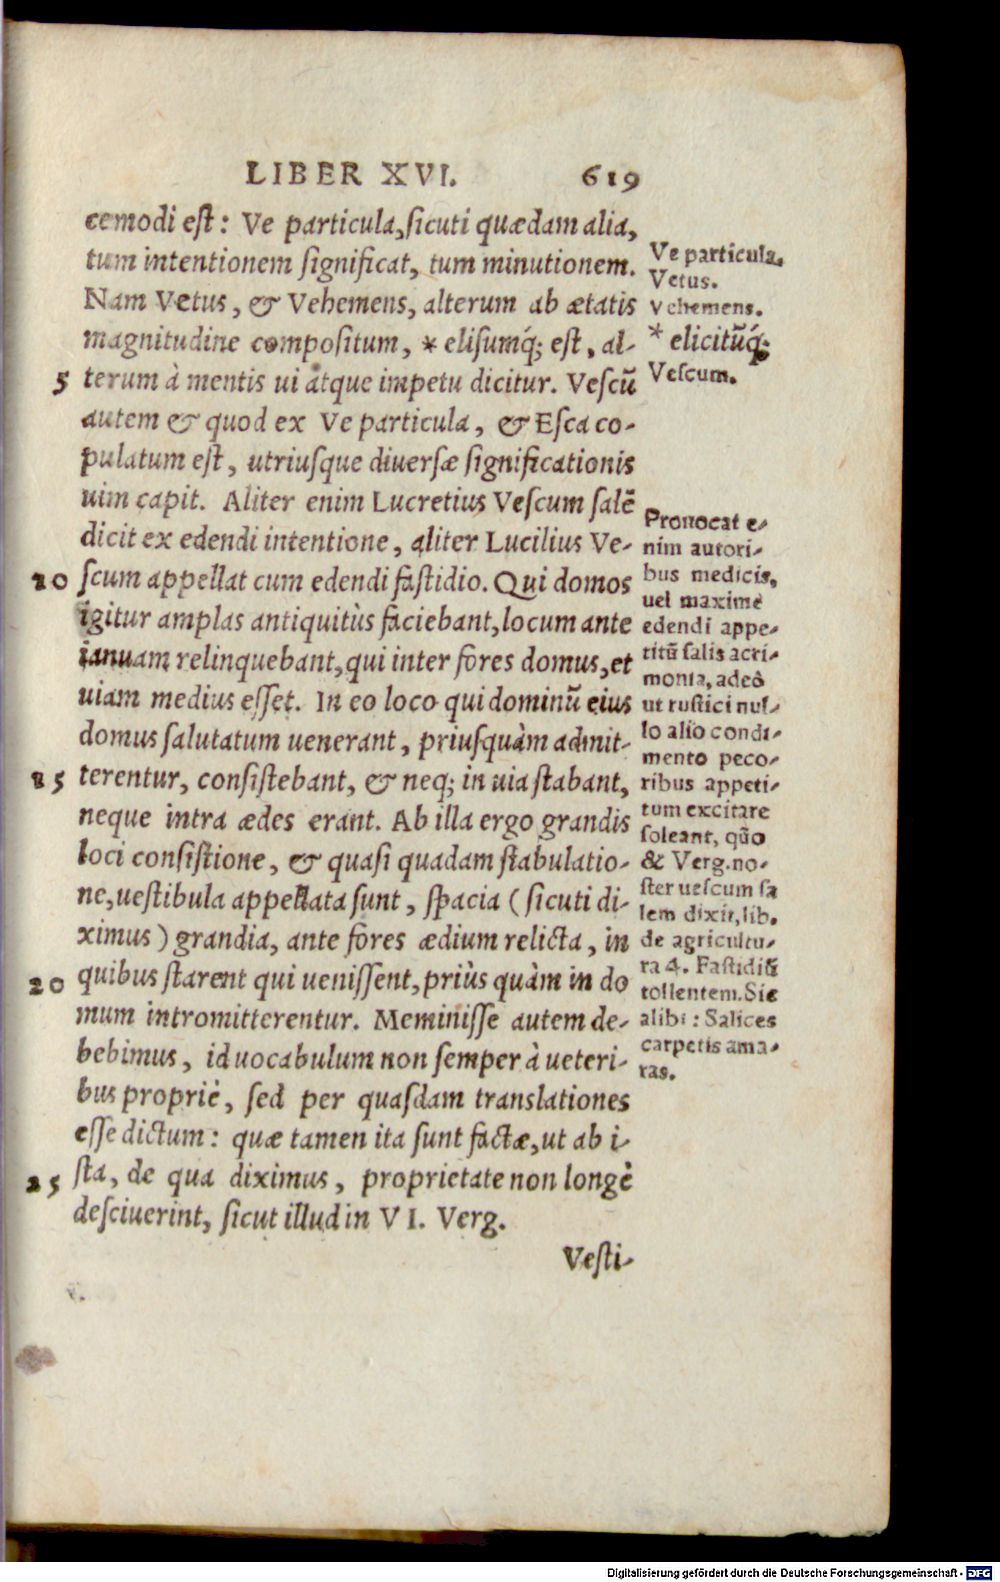 LIBER XVI. 619
cemodi est: Ve particula, sicuti quædam alia,
tum intentionem significat, tum minutionem.
Nam Vetus, & Vehemens, alterum ab ætatis
magnitudine compositum, * elisumq́; est, al-
5 terum à mentis ui atque impetu dicitur. Vescũ
autem & quod ex Ve particula, & Esca co-
pulatum est, utriusque diuersæ significationis
uim capit. Aliter enim Lucretius Vescum salẽ
dicit ex edendi intentione, aliter Lucilius Ve-
10 scum appellat cum edendi fastidio. Qui domos
igitur amplas antiquitùs faciebant, locum ante
ianuam relinquebant, qui inter fores domus, et
uiam medius esset. In eo loco qui dominũ eius
domus salutatum uenerant, priusquàm admit-
15 terentur, consistebant, & neq; in uia stabant,
neque intra ædes erant. Ab illa ergo grandis
loci consistione, & quasi quadam stabulatio-
ne, uestibula appellata sunt, spacia (sicuti di-
ximus) grandia, ante fores ædium relicta, in
20 quibus starent qui uenissent, priùs quàm in do
mum intromitterentur. Meminisse autem de-
bebimus, id uocabulum non semper à ueteri-
bus propriè, sed per quasdam translationes
esse dictum: quæ tamen ita sunt factæ, ut ab i-
25 sta, de qua diximus, proprietate non longè
desciuerint, sicut illud in VI. Verg.
Vesti-
Ve particula.
Vetus.
Vehemens.
* elicitũq́;
Vescum.
Prouocat e-
nim autori-
bus medicis,
uel maximè
edendi appe-
titũ salis acri-
monia, adeò
ut rustici nul-
lo alio condi-
mento peco-
ribus appeti-
tum excitare
soleant, quo
& Verg. no-
ster uescum sa
lem dixit, lib.
de agricultu-
ra 4. Fastidiũ
tollentem. Sic
alibi: Salices
carpetis ama-
ras.
Digitalisierung gefördert durch die Deutsche Forschungsgemeinschaft - DFG